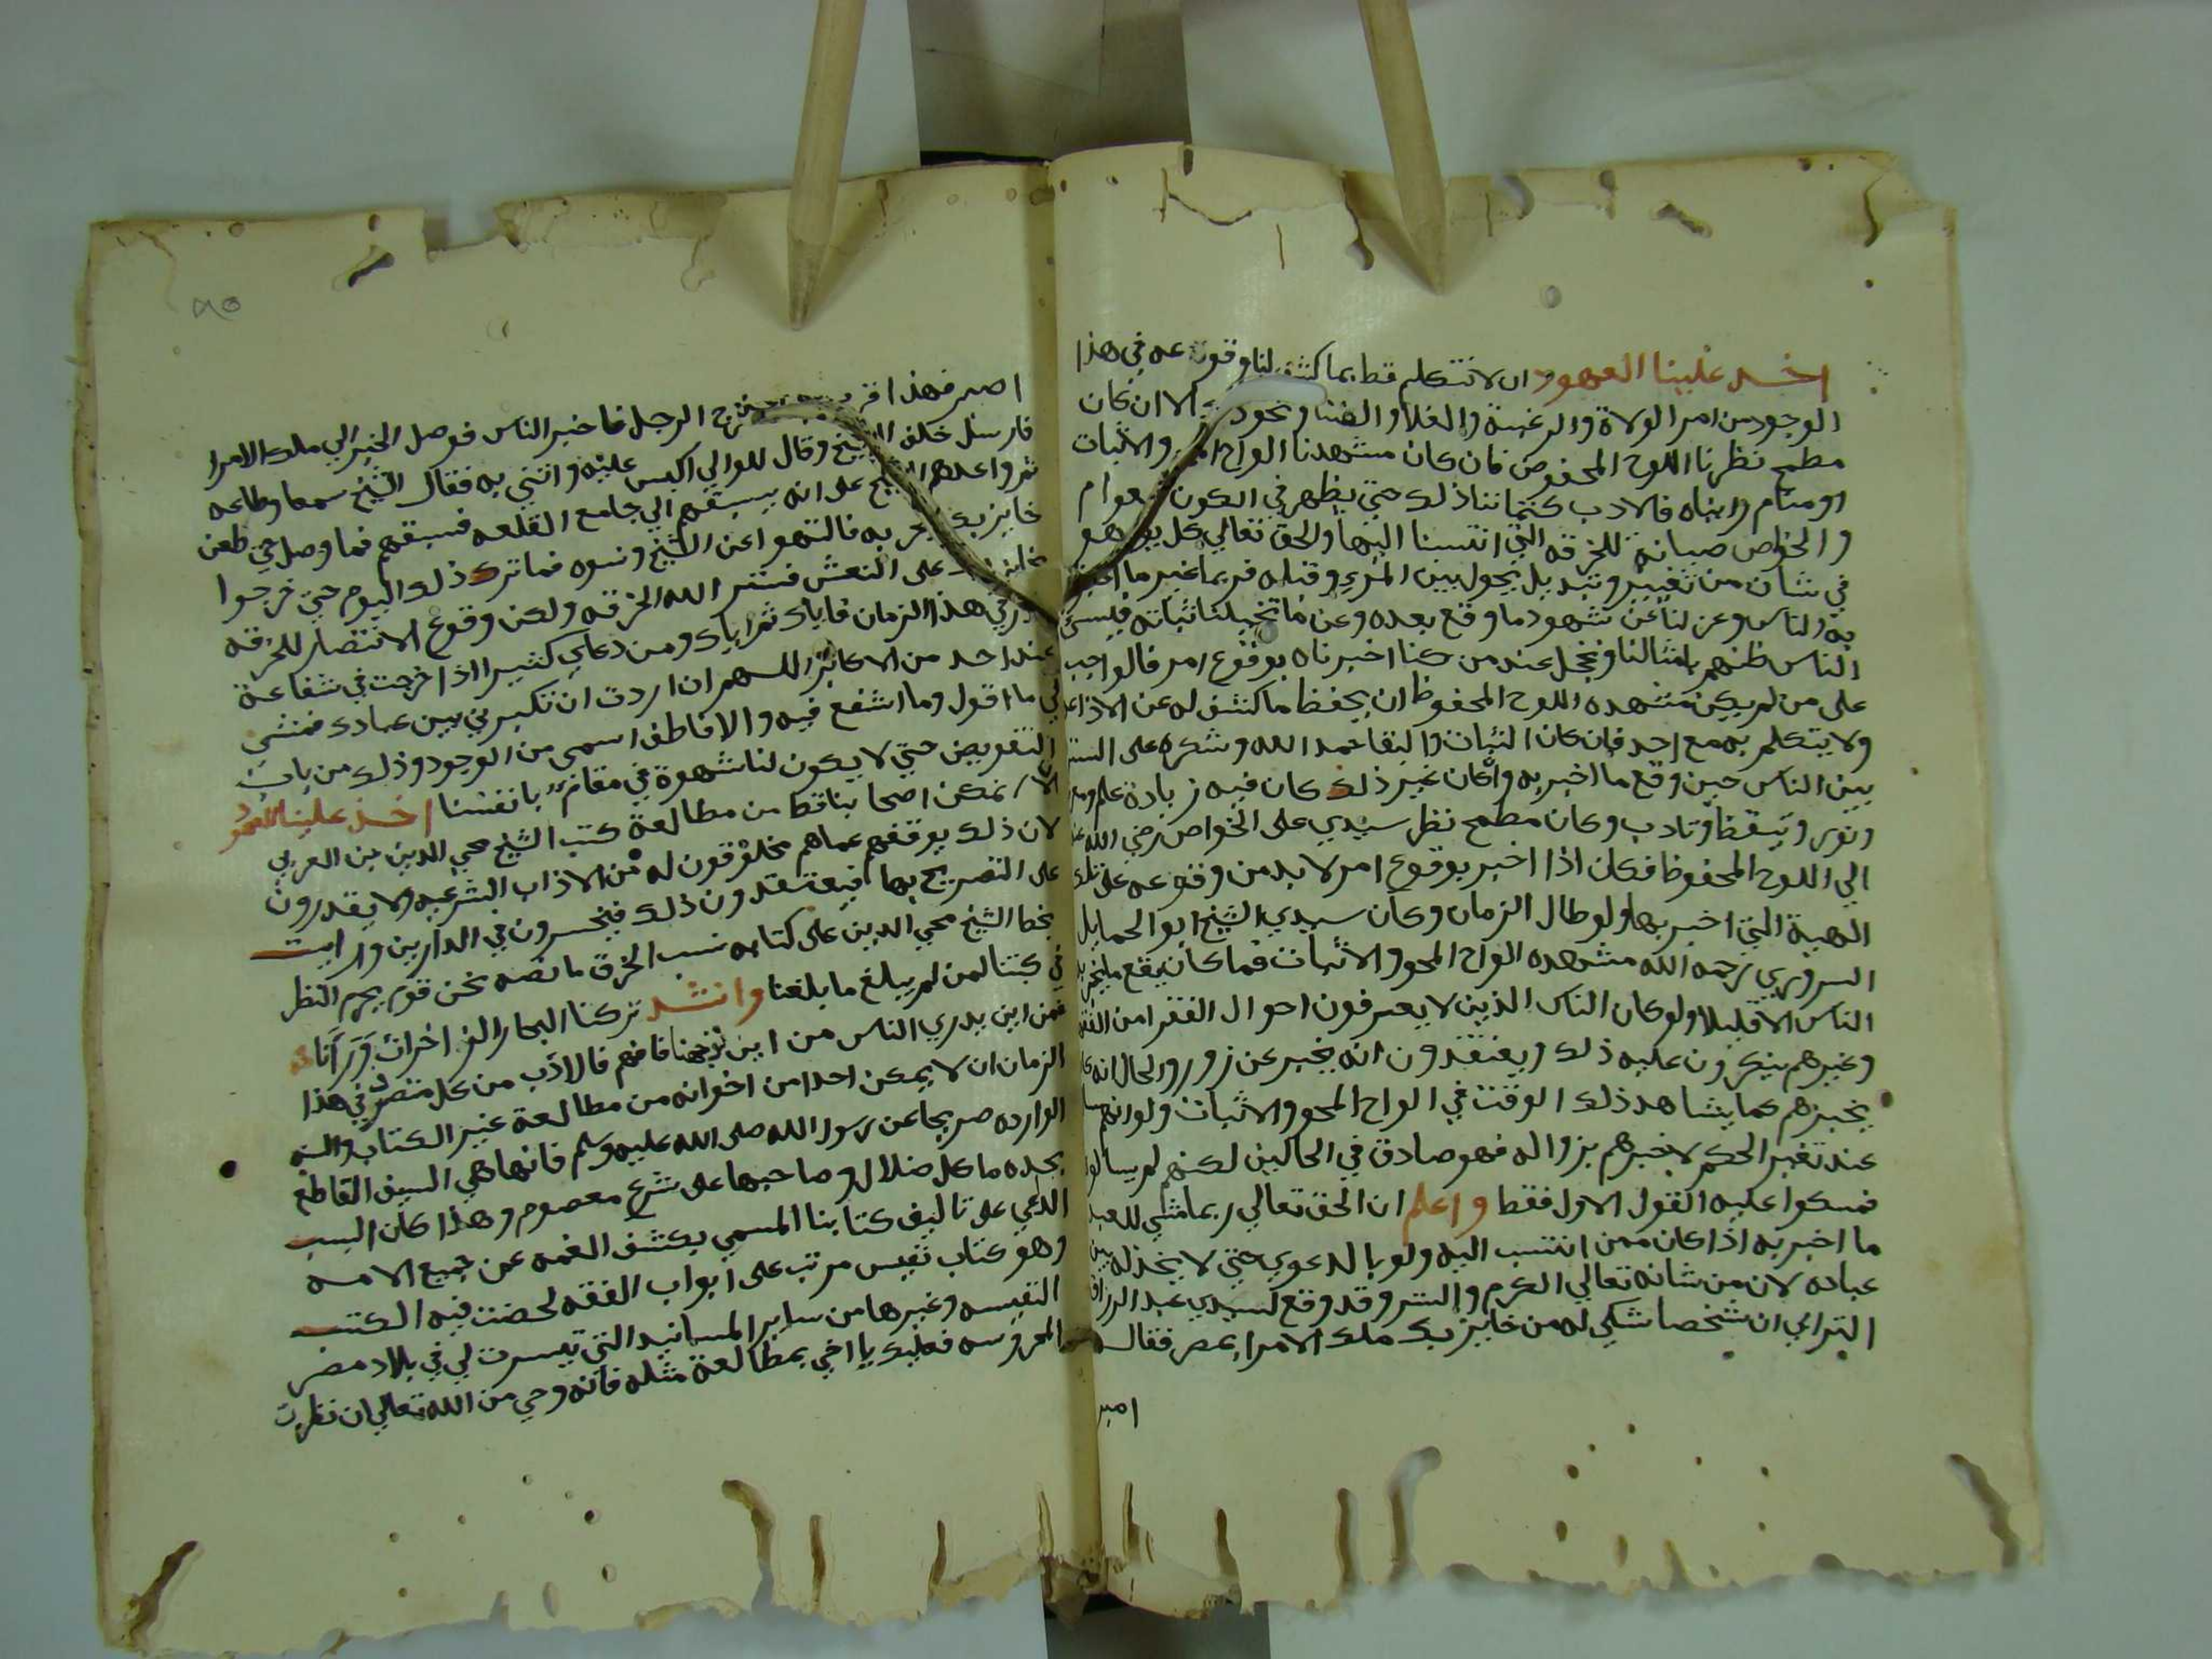 اخذ علينا العهود ان لا نتكلم قط بما كشف لنا وقوعه في هذا
الوجود من امر الولاة والرغبة والغلا والفنا ونحو الا ان كان
مطمح نظرنا اللوح المحفوض فان كان مشهدنا الواح والاثبات
او منام رايناه فالادب كتماننا ذلك حتي يظهر في الكون عوام
والخواص صيانة للخرقه التي انتسبنا اليها والحق تعالي كل يوم هو
في شان من تغيير وتبديل يحول بين المرء وقلبه فربما غير ما اخبرنا
به الناس وعزلنا عن شهود ما وقع بعده وعن ما تخيلنا ثباته فيسئ
الناس ظنهم بامثالنا ونخجل عند من كنا اخبرناه بوقوع امر فالواجب
على من لم يكن مشهده اللوح المحفوظ ان يحفظ ما كشف له عن الاذاعه
ولا يتكلم به مع احد فان كان الثبات والبقا حمد الله وشكره على الستر
بين الناس حين وقع ما اخبر به وان كان غير ذلك كان فيه زيادة علم
ونور وتيقظ وتادب وكان مطمح نظر سيدي على الخواص رضي الله
الي اللوح المحفوظ فكان اذا اخبر بوقوع امر لا بد من وقوعه على تلك
الهية التي اخبر بها ولو طال الزمان وكان سيدي الشيخ ابو الحمايل
السروري رحمه الله مشهده الواح المحو والاثبات فما كان يقع ما يخبر به
الناس الا قليلا ولو كان الناس الذين لا يعرفون احوال الفقرا من الفقها
وغيرهم ينكرون عليه ذلك ويعتقدون انه يخبر عن زور والحال انه
يخبرهم عما يشاهد ذلك الوقت في الواح المحو والاثبات ولو انهم
عند تغير الحكم لاخبرهم بزواله فهو صادق في الحالين لكنهم لم يسالوا
فمسكوا عليه القول الاول فقط واعلم ان الحق تعالي ربما مشي للعبد
ما اخبر به اذا كان ممن انتسب اليه ولو بالدعوي حتي لا يخذله بين
عباده لان من شانه تعالي الكرم والستر وقد وقع لسيدي عبد الرزاق
الترابي ان شخصا شكي له من خايز بك ملك الامرا بمصر فقال له
اصبر
اصبر فهذا خرج الرجل فاخبر الناس فوصل الخبر الي ملك الامرا
فارسل خلف الشيخ وقال للوالي اكبس عليه وائتني به فقال الشيخ سمعا وطاعه
ثم واعدهم الشيخ على انه يسبقهم الي جامع القلعه فسبقهم فما وصل حتي طعن
خايز بك به فالتهوا عن الشيخ ونسوه فما ترك ذلك اليوم حتي خرجوا
على النعش فستر الله الخرقه ولكن وقوع الانتصار للخرقه
في هذا الزمان فاياك ثم اياك ومن دعاي كثيرا اذا خرجت في شفاعة
عند احد من الاكابر اللهم ان اردت ان تكبرني بين عبادك فمشي
لي ما اقول وما اشفع فيه والا فاطف اسمي من الوجود وذلك من باب
التفويض حتي لا يكون لنا شهوة في مقام بانفسنا اخذ علينا العهود
الا نمكن اصحابنا قط من مطالعة كتب الشيخ محي الدين بن العربي
لان ذلك يوقفهم عماهم مخلوقون له من الاداب الشرعيه ولا يقدرون
على التصريح بها فيعتقدون ذلك فيخسرون في الدارين ورايت
بخط الشيخ محي الدين على كتابه نسب الخرق ما نصه نحن قوم يحرم النظر
في كتبنا لمن لم يبلغ ما بلغنا وانشد تركنا البحار الزاخرات وراءنا
فمن اين يدري الناس من اين توجهنا فافهم فالادب من كل متصدر في هذا
الزمان ان لا يمكن احدا من اخوانه من مطالعة غير الكتاب والسنه
الوارده صريحا عن رسول الله صلى الله عليه وسلم فانها هي السيف القاطع
بحده ما كل ضلال وصاحبها على شرع معصوم وهذا كان السبب
الداعي على تاليف كتابنا المسمي بكشف الغمه عن جميع الامه
وهو كتاب نفيس مرتب على ابواب الفقه لخصت فيه الكتب
النفيسه وغيرها من ساير المسانيد التي تيسرت لي في بلاد مصر
المحروسه فعليك يا اخي بمطالعة مثله فانه وحي من الله تعالي ان نظرت